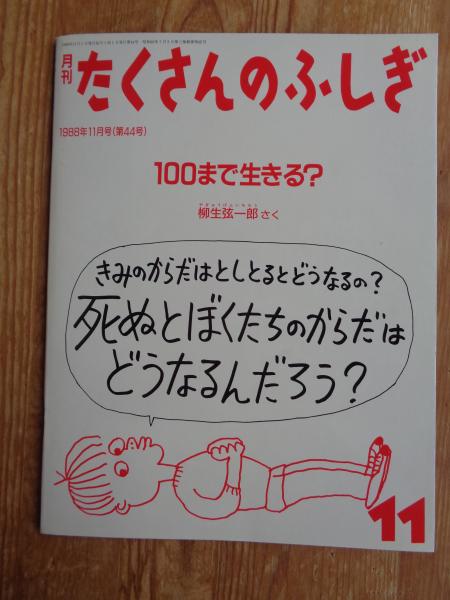 月刊 たくさんのふしぎ
1988年11月号(第44号)
100まで生きる?
やぎゅうげんいちろう
柳生弦一郎 さく
きみのからだはとしとるとどうなるの?
死ぬとぼくたちのからだは
どうなるんだろう?
11